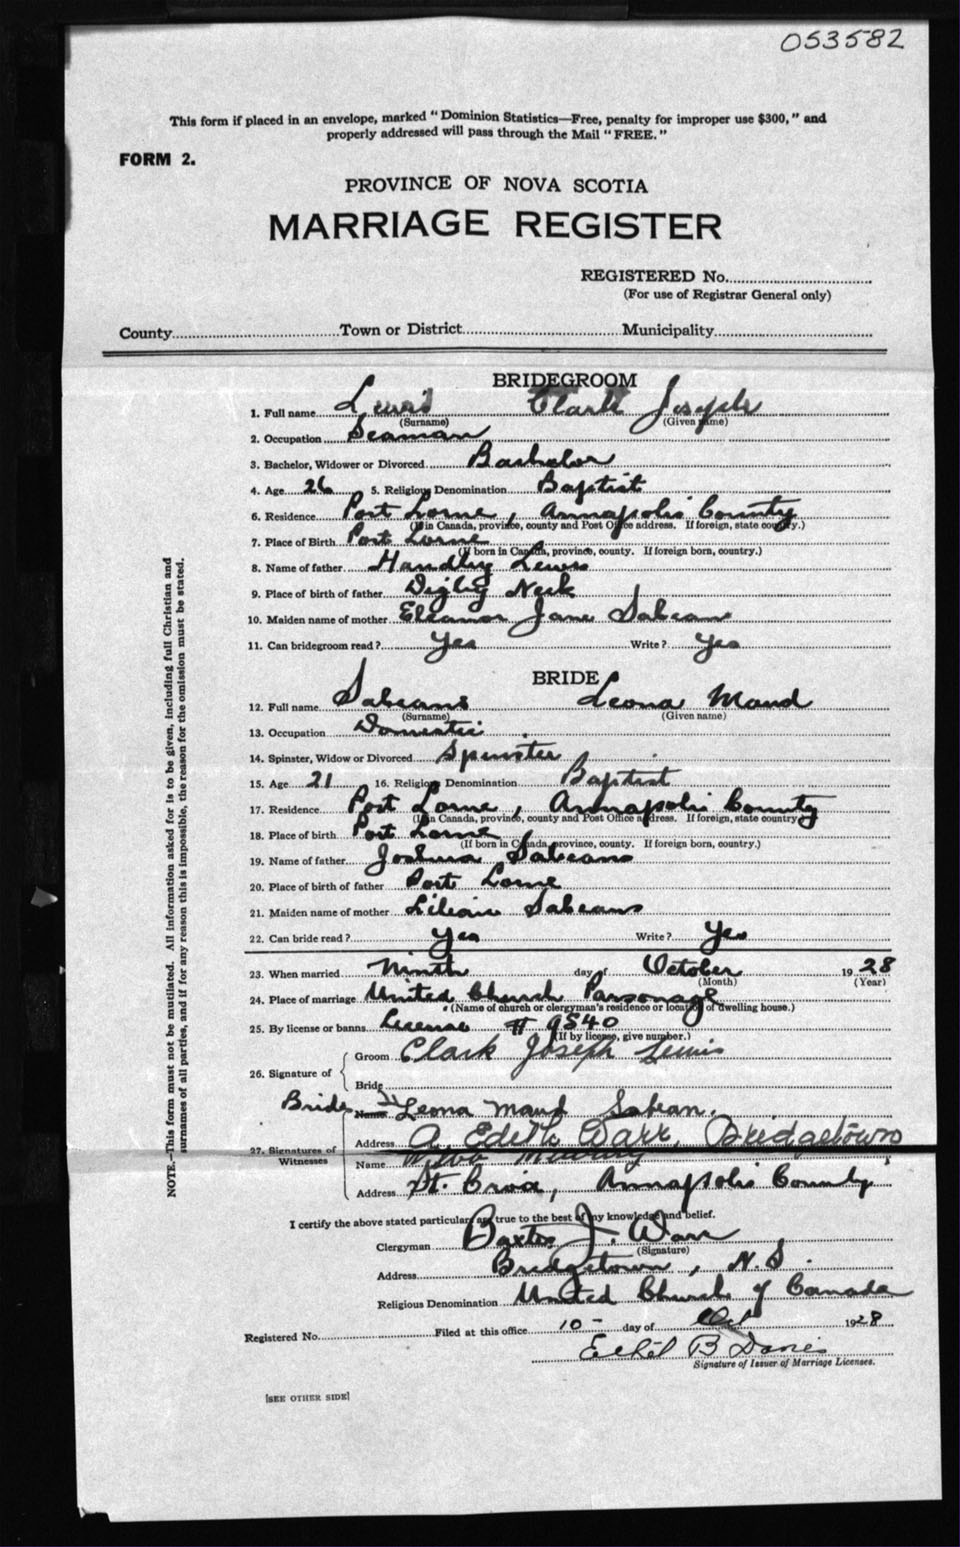 053582
This form if placed in an envelope, marked "Dominion Statistics—Free, penalty for improper use $300," and
properly addressed will pass through the Mail "FREE."
FORM 2.
PROVINCE OF NOVA SCOTIA
MARRIAGE REGISTER
REGISTERED No.
(For use of Registrar General only)
County Town or District Municipality
BRIDEGROOM
1. Full name Lewis Clark Joseph
(Surname) (Given name)
2. Occupation Seaman
3. Bachelor, Widower or Divorced Bachelor
4. Age 26 5. Religious Denomination Baptist
6. Residence Port Lorne, Annapolis County
(If in Canada, province, county and Post Office address. If foreign, state country.)
7. Place of Birth Port Lorne
(If born in Canada, province, county. If foreign born, country.)
8. Name of father Handley Lewis
9. Place of birth of father Digby Neck
10. Maiden name of mother Eleanor Jane Sabean
11. Can bridegroom read? Yes Write? Yes
BRIDE
12. Full name Sabeans Leona Maud
(Surname) (Given name)
13. Occupation Domestic
14. Spinster, Widow or Divorced Spinster
15. Age 21 16. Religious Denomination Baptist
17. Residence Port Lorne, Annapolis County
(If in Canada, province, county and Post Office address. If foreign, state country.)
18. Place of birth Port Lorne
(If born in Canada, province, county. If foreign born, country.)
19. Name of father Joshua Sabeans
20. Place of birth of father Port Lorne
21. Maiden name of mother Lilian Sabeans
22. Can bride read? Yes Write? Yes
23. When married Ninth day of October 1928
(Month) (Year)
24. Place of marriage United Church Parsonage
(Name of church or clergyman's residence or location of dwelling house.)
25. By license or banns License # 9540
(If by license, give number.)
Groom Clark Joseph Lewis
26. Signature of
Bride
Bride Name Leona Maud Sabean.
Address A. Edith Warr, Bridgetown
27. Signatures of
Witnesses Name
Address St. Croix, Annapolis County
I certify the above stated particulars are true to the best of my knowledge and belief.
Clergyman Baxter J. Warr
(Signature)
Address Bridgetown, N.S.
Religious Denomination United Church of Canada
Registered No. Filed at this office 10- day of Oct 1928
Ethel B Davies
Signature of Issuer of Marriage Licenses.
[SEE OTHER SIDE]
NOTE.—This form must not be mutilated. All information asked for is to be given, including full Christian and
surnames of all parties, and if for any reason this is impossible, the reason for the omission must be stated.